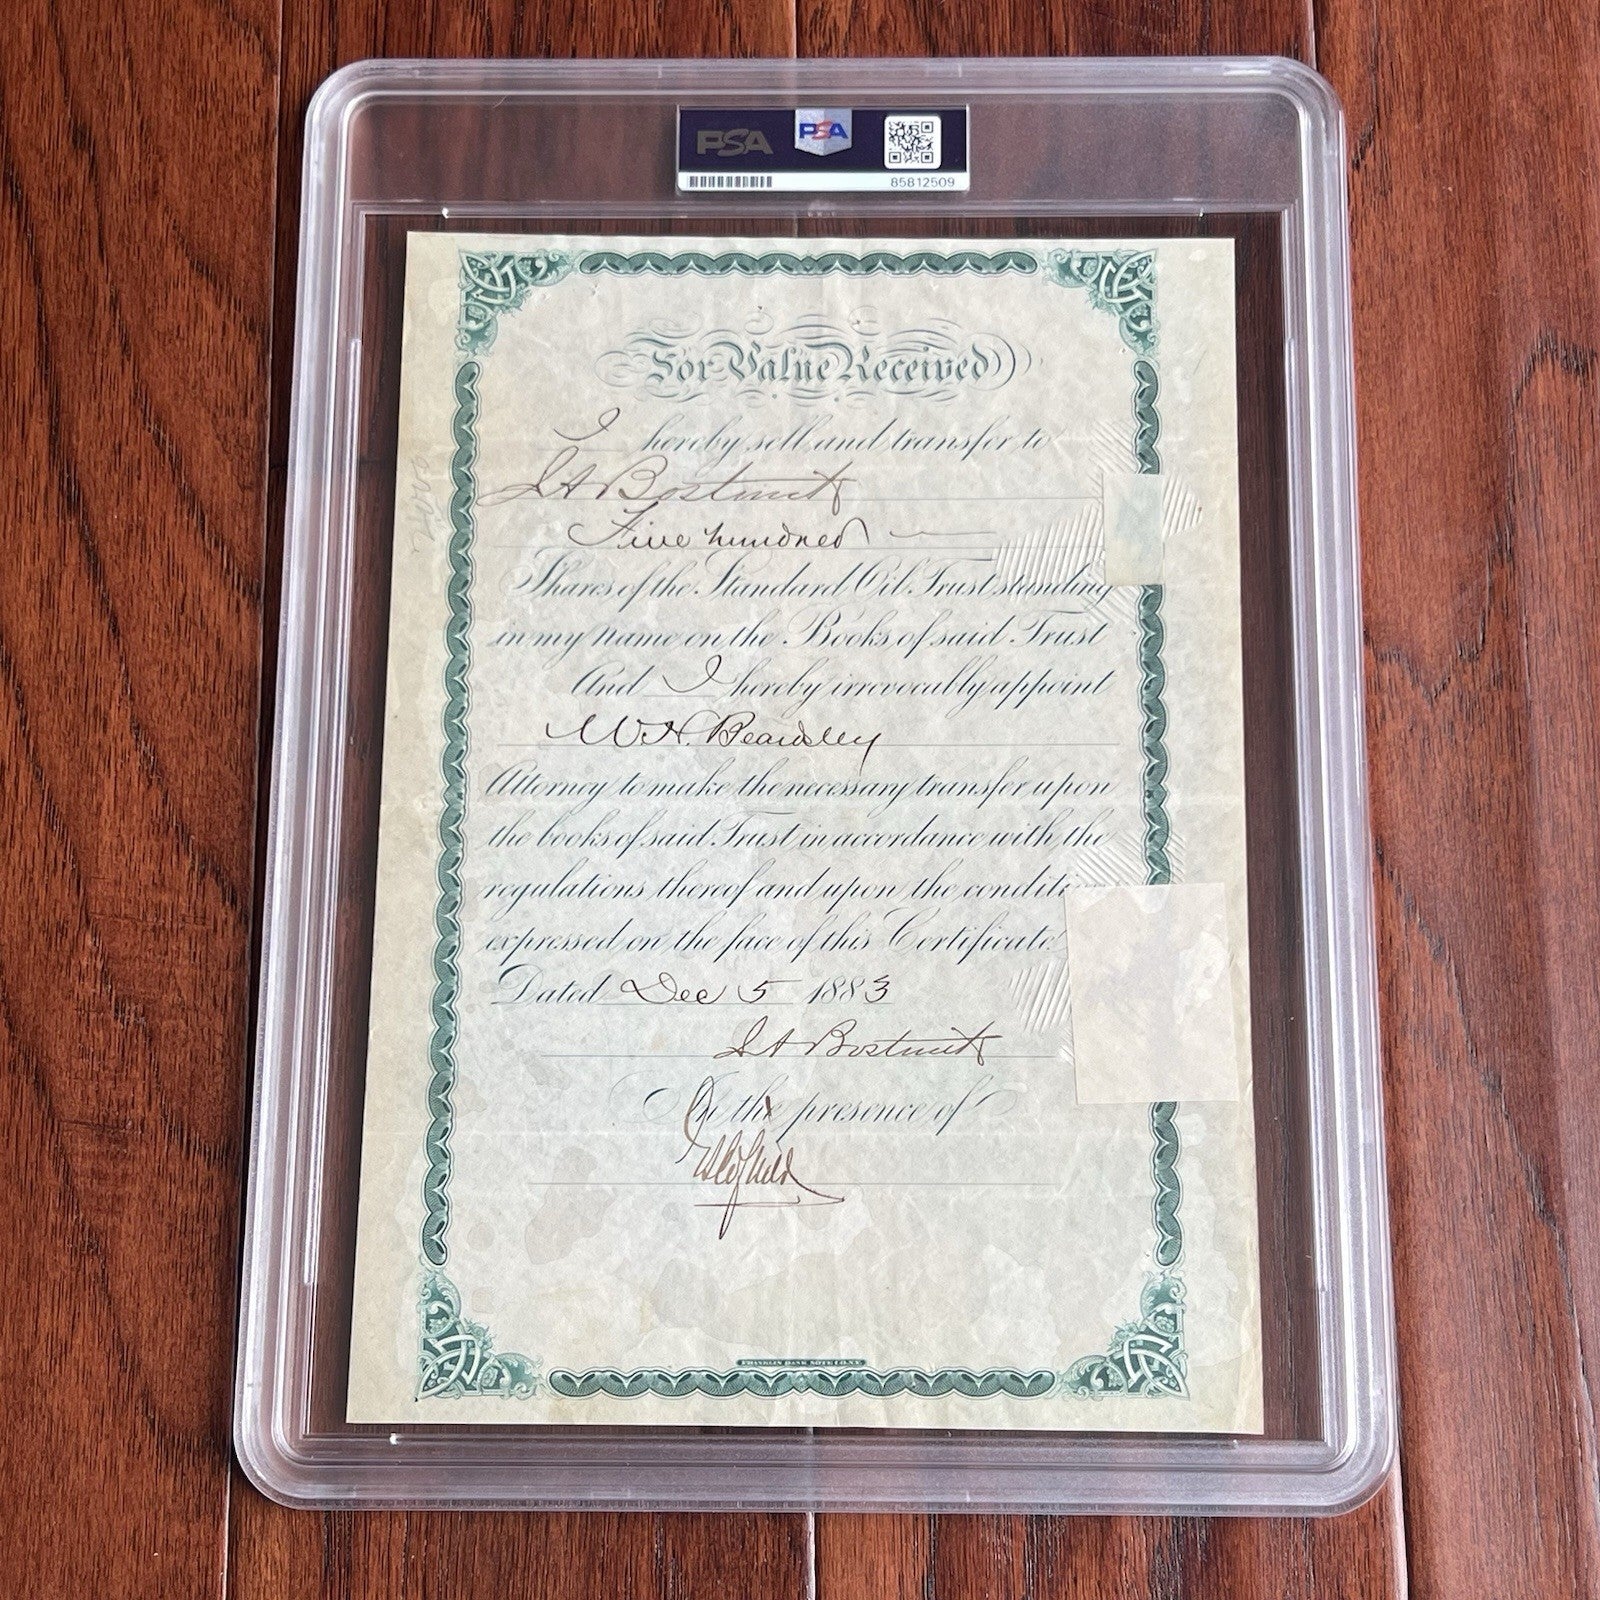 PSA
PSA
85812509
For Value Received
I hereby sell and transfer to
J A Bostwick
Five hundred
Shares of the Standard Oil Trust standing
in my name on the Books of said Trust
And I hereby irrevocably appoint
W.H. Beardsley
Attorney to make the necessary transfer upon
the books of said Trust in accordance with the
regulations thereof and upon the
expressed on the face of this Certificate.
Dated Dec 5 1883
J A Bostwick
In the presence of
FRANKLIN BANK NOTE CO. N.Y.